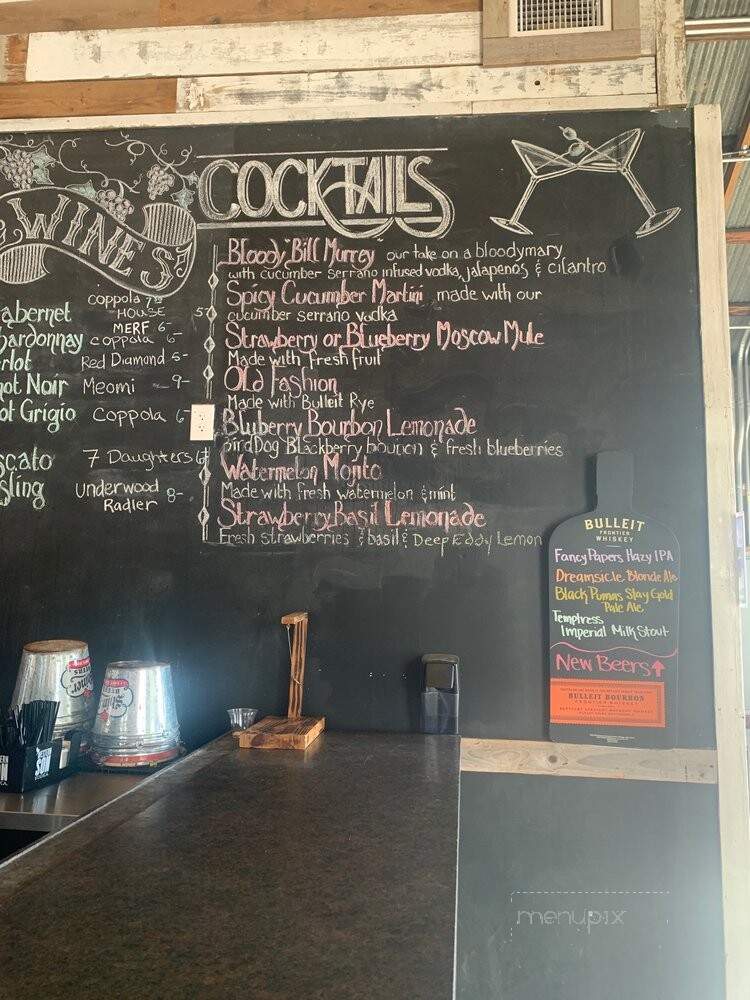 WINES
abernet coppola 7
HOUSE 5
MERF 6-
hardonnay coppola 6-
rlot Red Diamond 5-
ot Noir Meomi 9-
ot Grigio Coppola 6
scato 7 Daughters 6
sling Underwood 8-
Radler
COCKTAILS
Bloody "Bill Murrey our take on a bloodymary
with cucumber serrano infused vodka, jalapenos & cilantro
Spicy Cucumber Martini made with our
cucumber serrano vodka
Strawberry or Blueberry Moscow Mule
Made with fresh fruit
Old Fashion
Made with Bulleit Rye
Bluberry Bourbon Lemonade
BirdDog Blackberry bourbon & fresh blueberries
Watermelon Mojito
Made with fresh watermelon & mint
Strawberry Basil Lemonade
Fresh strawberries & basil & Deep Eddy Lemon
BULLEIT
FRONTIER
WHISKEY
Fancy Papers Hazy IPA
Dreamsicle Blonde Ale
Black Pumas Stay Gold
Pale Ale
Temptress
Imperial Milk Stout
New Beers
BULLEIT BOURBON
FRONTIER WHISKEY
menupix